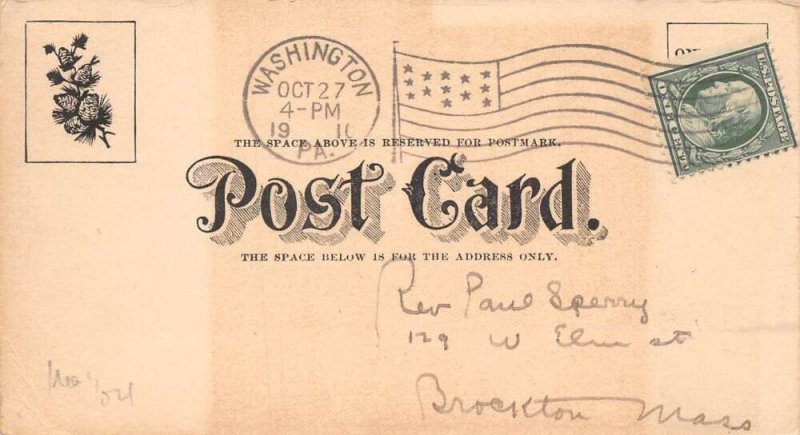 WASHINGTON
OCT 27
4-PM
19 10
PA.
U.S. POSTAGE
ONE CENT
THE SPACE ABOVE IS RESERVED FOR POSTMARK.
Post Card.
THE SPACE BELOW IS FOR THE ADDRESS ONLY.
Rev Paul Sperry
129 W Elm st
Brockton Mass